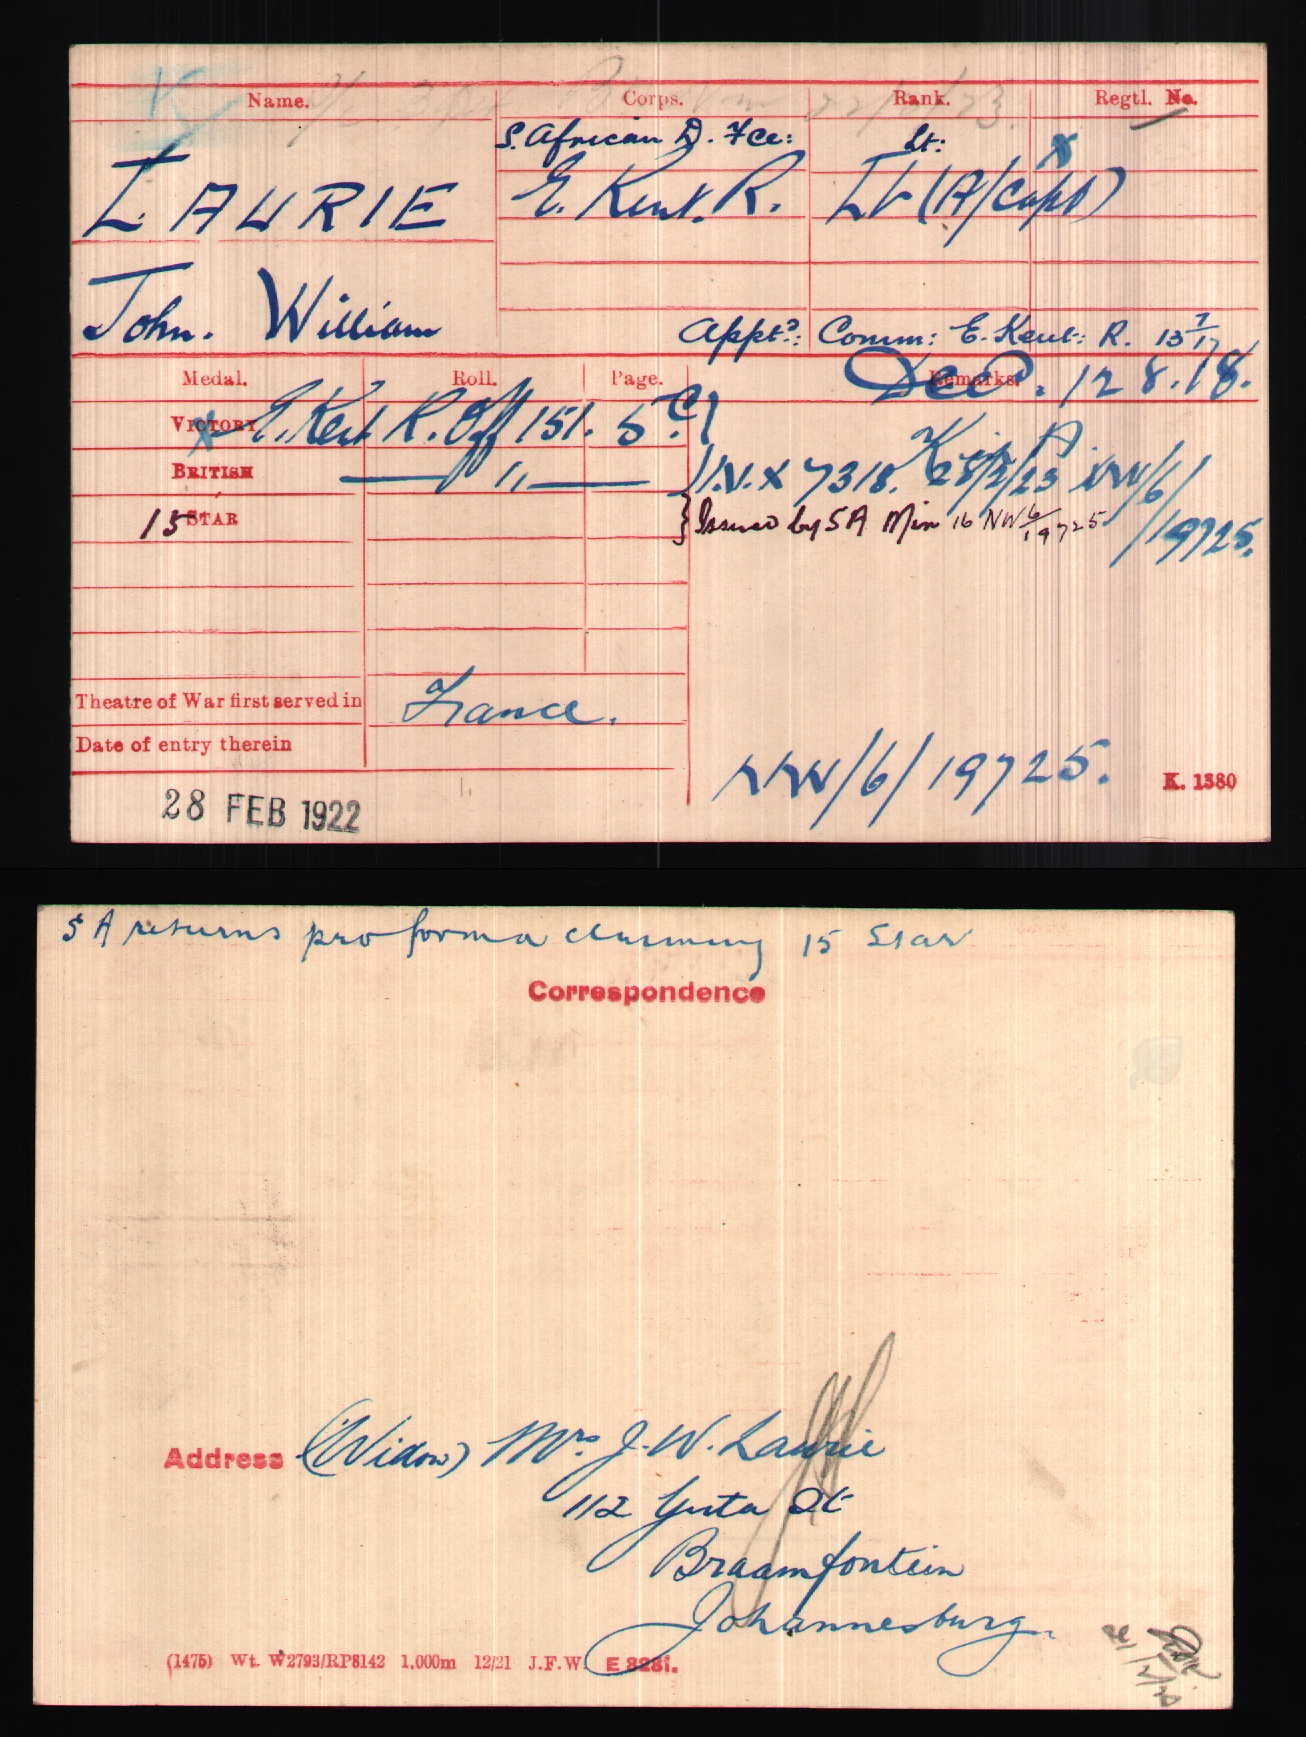 Name. Corps. Rank. Regtl. No.
S. African D. Fce: Lt:
LAURIE E. Kent. R. Lt (A/Capt)
John. William
Apptd: Comm: E. Kent: R. 13/7/17
Medal. Roll. Page. Remarks.
Dec. 12 8.18.
VICTORY E. Kent R. Off 151. 5 C.
BRITISH — " — I.V. X 7318. 28/2/23 NW/6/19725.
15 STAR Issued by SA Min 16 NW 6/19725
Theatre of War first served in France.
Date of entry therein
NW/6/19725.
K. 1380
28 FEB 1922
SA returns pro forma claiming 15 Star
Correspondence
Address (Widow) Mrs J. W. Laurie
112 Juta St
Braamfontein
Johannesburg.
(1475) Wt. W2793/RP8142 1,000m 12/21 J.F.W. E 8281.